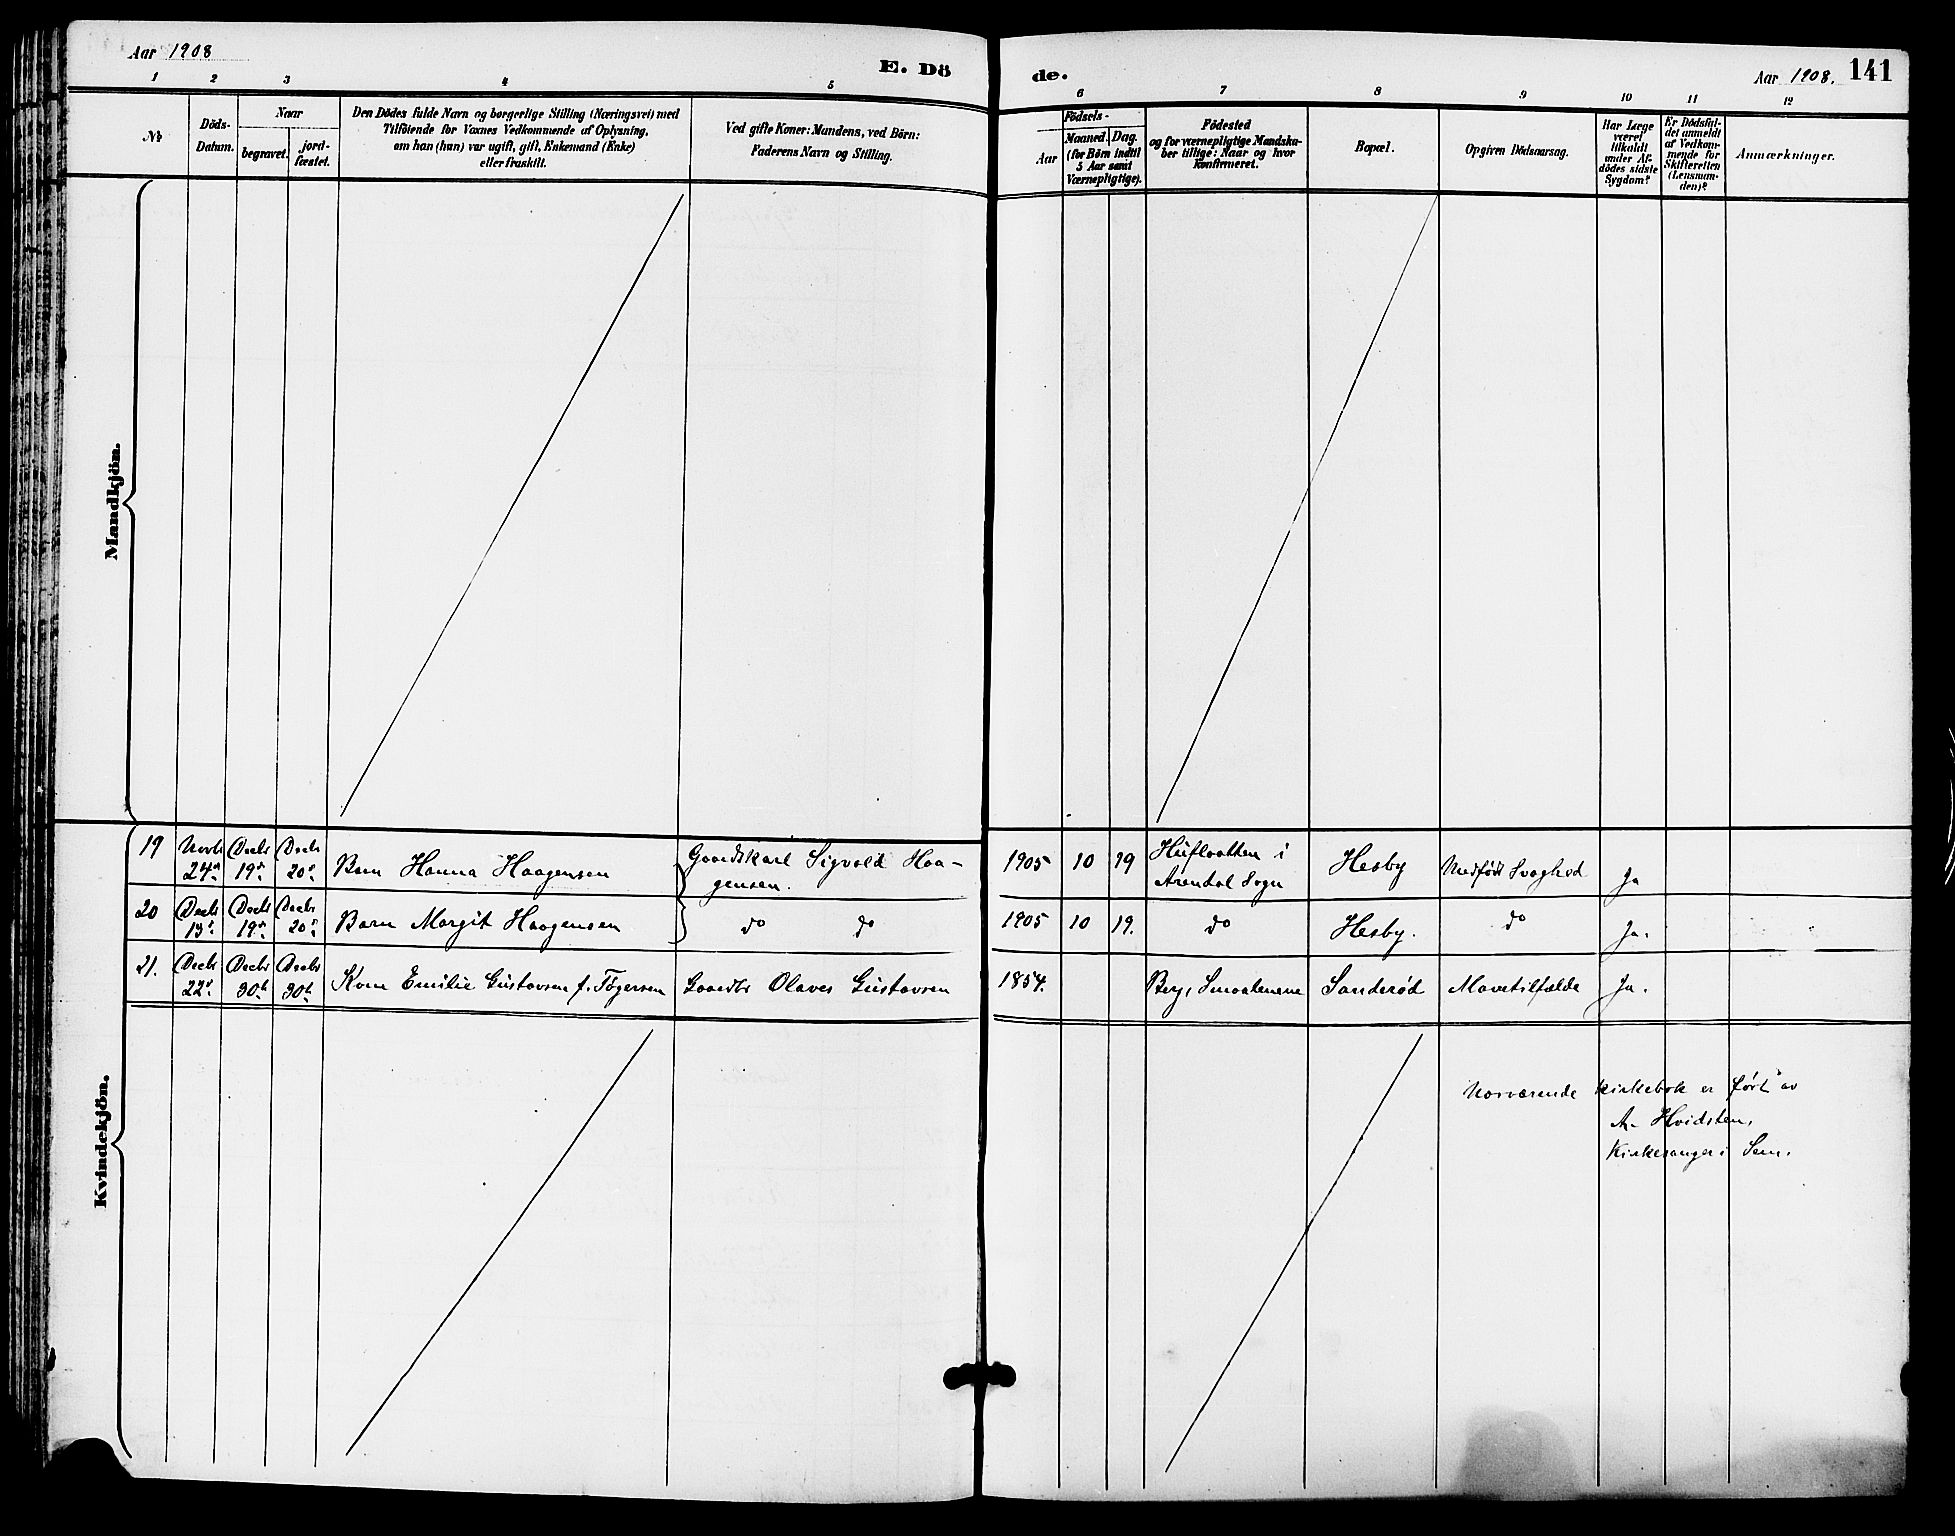 Aar 1908
E. Dö
de.
Aar 1908.
141
1 2 3 4 5
6 7 8 9 10 11 12
№
Döds-
Datum.
Naar
begravet.
jord-
fæstet.
Den Dödes fulde Navn og borgerlige Stilling (Næringsvei) med
Tilföiende for Voxnes Vedkommende af Oplysning,
om han (hun) var ugift, gift, Enkemand (Enke)
eller fraskilt.
Ved gifte Koner: Mandens, ved Börn:
Faderens Navn og Stilling.
Födsels-
Aar
Maaned.
Dag.
(for Börn indtil
5 Aar samt
Værnepligtige).
Födested
og for værnepligtige Mandska-
ber tillige: Naar og hvor
konfirmeret.
Bopæl.
Opgiven Dödsaarsag.
Har Læge
været
tilkaldt
under Af-
dödes sidste
Sygdom?
Er Dödsfal-
det anmeldt
af Vedkom-
mende for
Skifteretten
(Lensman-
den)?
Anmærkninger.
Mandkjön.
19 Novbr 24de Decbr 19de Decbr 20de Barn Hanna Haagensen Gaardskarl Sigvald Haa-
gensen.
1905 10 19 i
Arendal Sogn
Hesby Medfødt Svaghed Ja
20 Decbr 13de Decbr 19de Decbr 20de Barn Margit Haagensen do do
1905 10 19. do Hesby. do Ja.
21. Decbr 22de Decbr 30te Decbr 30te Kone Emilie Gustavsen f. Tøgersen Gaardbr Olaves Gustavsen
1854. Berg, Smaalenene Sanderød Mavetilfælde Ja.
Kvindekjön.
Nærværende kirkebok er ført av
A. Hvidsten,
Kirkesanger i Sem.